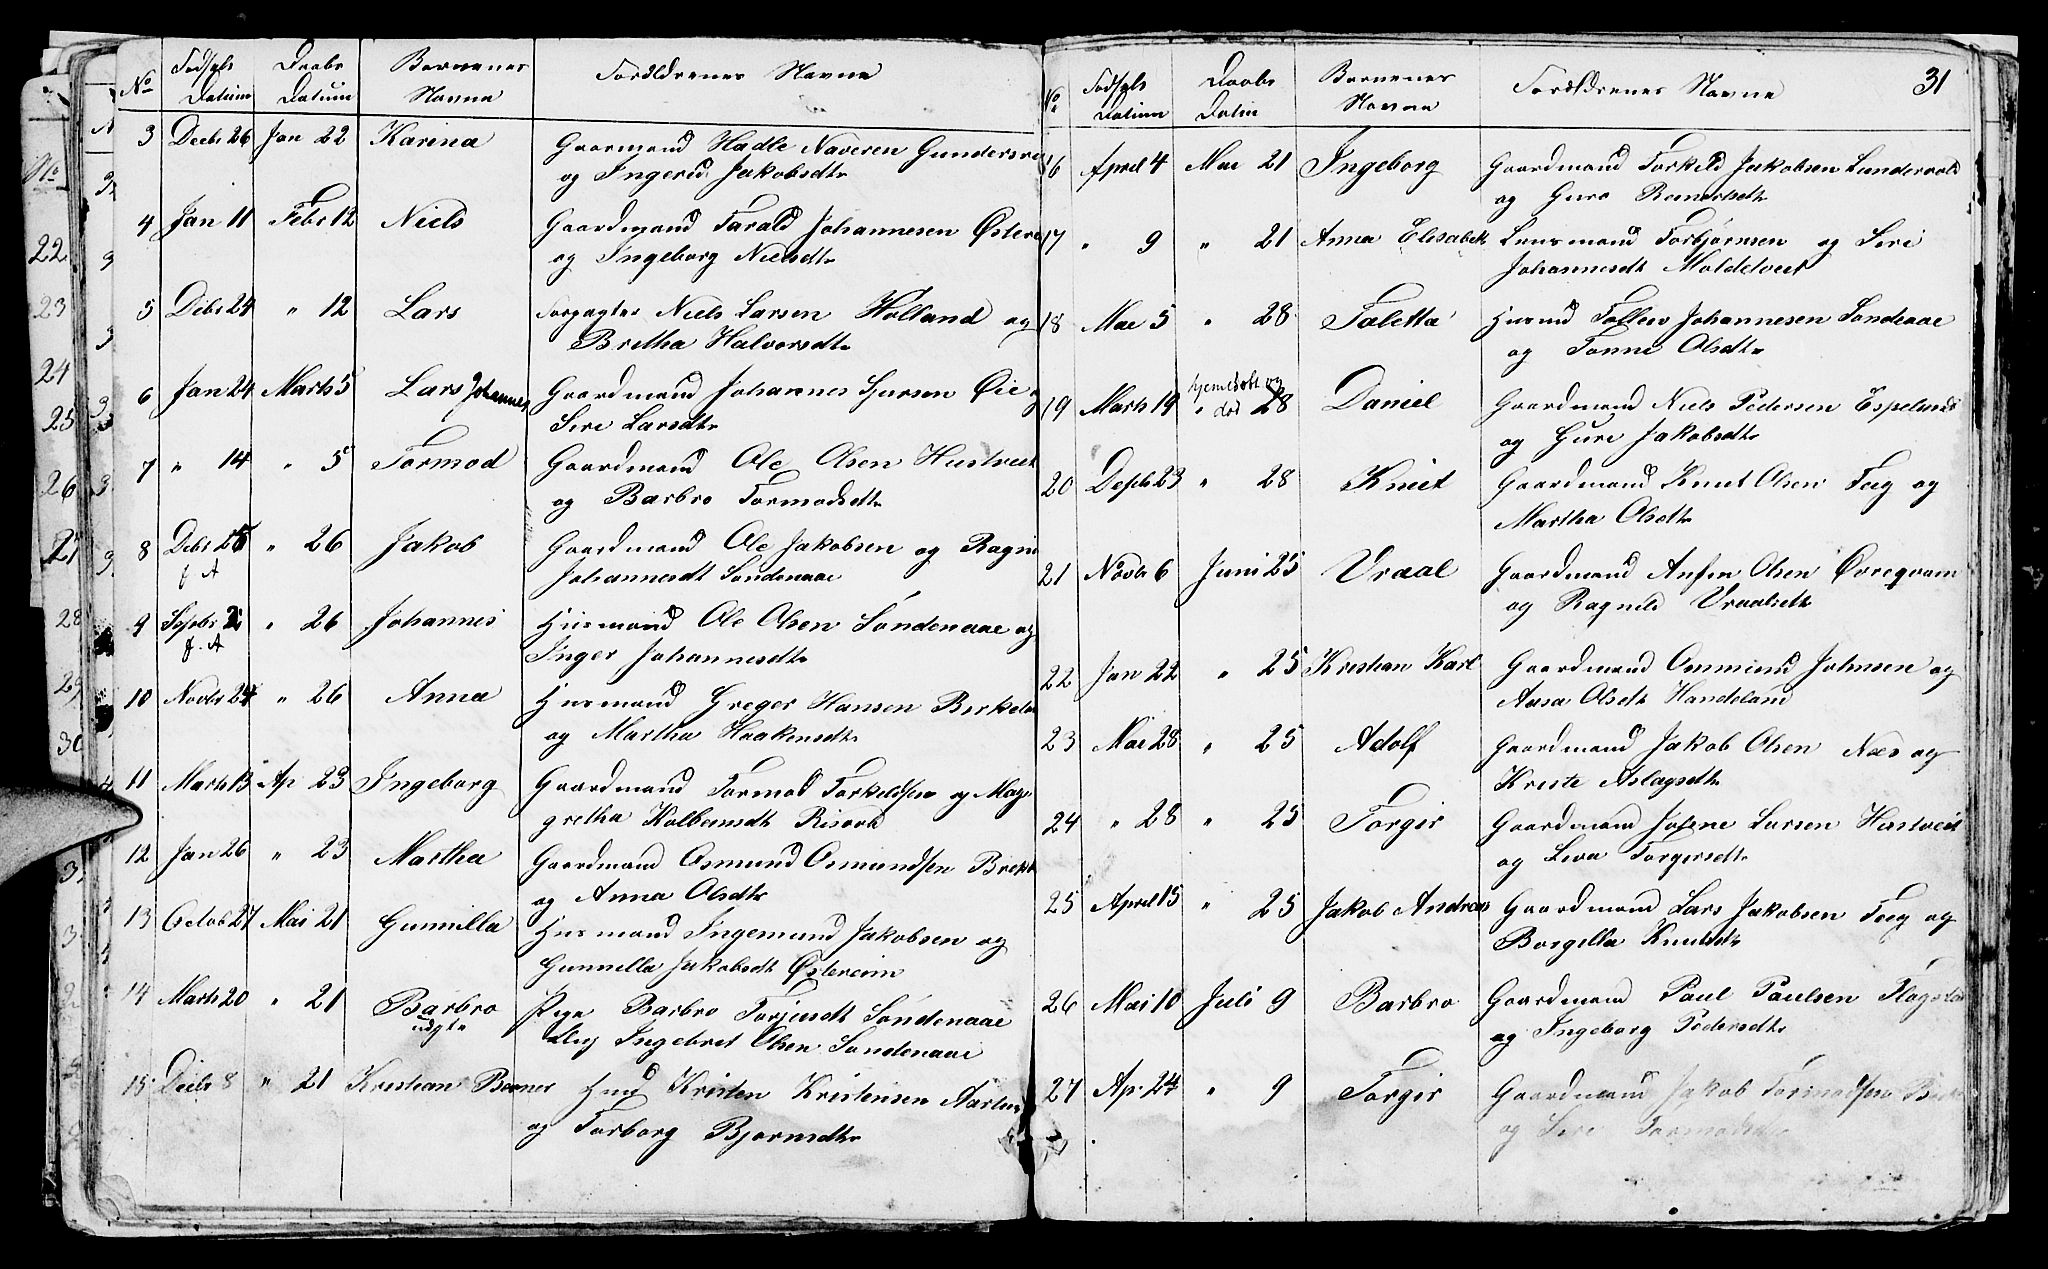 No Fødsels Daabs Børnenes Forældrenes Navne
Datum Datum Navne
3 Decbr 26 Jan 22 Karina Gaarmand Hadle Naveren Gunderse
og Ingerid Jakobsdtr
4 Jan 11 Febr 12 Niels Gaardmand Tarald Johannesen Østere
og Ingeborg Nielsdtr
5 Debr 24 " 12 Lars Forpagter Niels Larsen Hølland og
Bretha Halvorsdtr
6 Jan 24 Marts 5 Lars Johannes Gaardmand Johannes Sjursen Øie og
Siri Larsdtr
7 " 14 " 5 Tormod Gaardmand Ole Olsen Hustveit
og Barbro Tormodsdtr
8 Debr 26 " 26 Jakob Gaardmand Ole Jakobsen og Ragni
f A Johannesdt Søndenaae
9 Septbr 2 " 26 Johannes Husmand Ole Olsen Søndenaae og
f. A Inger Johannesdtr
10 Novbr 24 " 26 Anna Husmand Greger Hansen Birkela
og Martha Haakensdtr
11 Marts 13 Ap 23 Ingeborg Gaardmand Tormod Torkildsen og Mag
gretha Kolbensdt Risvold
12 Jan 26 " 23 Martha Gaardmand Osmund Osmundsen Brekk
og Anna Olsdtr
13 Octob 27 Mai 21 Gunnilla Husmand Ingemund Jakobsen og
Gunnilla Jakobsdt Østereim
14 Marts 20 " 21 Barbro Pige Barbro Torjusdt Søndenaae
uægte Ug Ingebret Olsen Søndenaae
15 Decbr 8 " 21 Kristian Berner Hmd Kristen Kristensen Aartun
og Torborg Bjørnsdtr
No Fødsels Daabs Børnenes Forældrenes Navne 31
Datum Datm Navne
16 April 4 Mae 21 Ingeborg Gaardmand Torkild Jakobsen Sundervold
og Guro Rasmusdtr
17 " 9 " 21 Anna Elisabet Lensmand Torbjørnsen og Siri
Johannesdt Moldetveit
18 Mae 5 " 28 Taletta Husmd Tollew Johannesen Søndenaae
og Tonne Olsdtr
19 Marts 19 hjemedøbt og
" død 28 Daniel Gaardmand Niels Pedersen Espeland
og Guri Jakobsdtr
20 Deptb 23 " 28 Knut Gaardmand Knut Olsen Feg og
Martha Olsdtr
21 Novbr 6 Juni 25 Vraal Gaardmand Anfin Olsen Øvreqvam
og Ragnild Vraalsdtr
22 Jan 22 " 25 Kristian Karl Gaardmand Ommund Johnsen og
Aasa Olsdtr Handeland
23 Mai 28 " 25 Adolf Gaardmand Jakob Olsen Næs og
Kristi Aslagsdtr
24 " 28 " 25 Torgir Gaardmand Johene Larsen Hustveit
og Siva Torgersdtr
25 April 15 " 25 Jakob Andreas Gaardmand Lars Jakobsen Feg og
Borgilla Knutsdtr
26 Mai 10 Juli 9 Barbro Gaardmand Paul Paulsen Fløgstad
og Ingeborg Pedersdtr
27 Ap 24 " 9 Torgir Gaardmand Jakob Tormodsen
og Siri Tormodsdtr
No
22
23
24
25
26
27
28
29
30